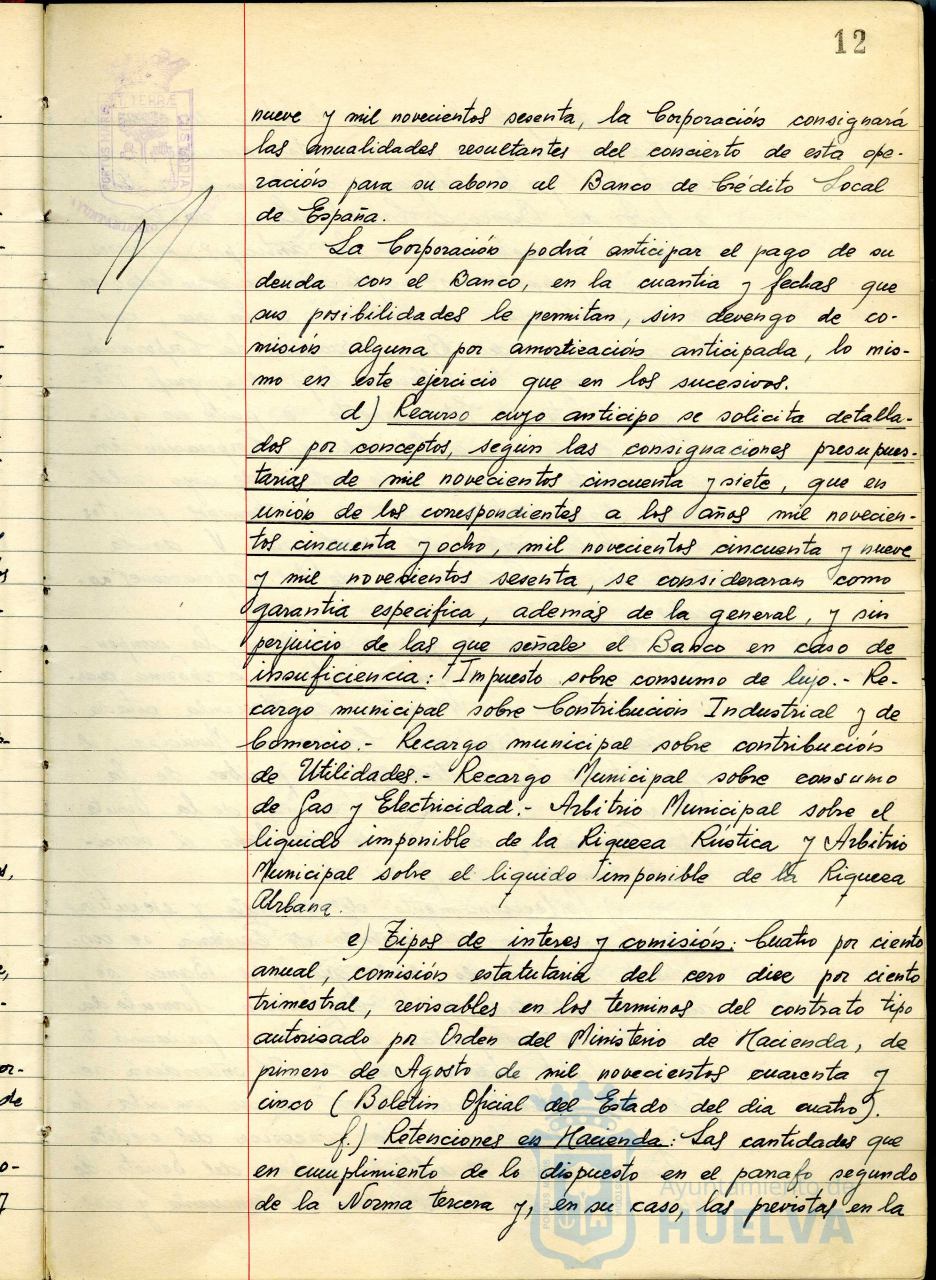 12
nueve y mil novecientos sesenta, la Corporación consignará
las anualidades resultantes del concierto de esta ope-
ración para su abono al Banco de Crédito Local
de España.
La Corporación podrá anticipar el pago de su
deuda con el Banco, en la cuantia y fechas que
sus posibilidades le permitan, sin devengo de co-
misión alguna por amorticación anticipada, lo mis-
mo en este ejercicio que en los sucesivos.
d) Recurso cuyo anticipo se solicita detalla-
dos por conceptos, según las consignaciones presupues-
tarias de mil novecientos cincuenta y siete, que en
unión de los correspondientes a los años mil novecien-
tos cincuenta y ocho, mil novecientos cincuenta y nueve
y mil novecientos sesenta, se consideraran como
garantia especifica, además de la general, y sin
perjuicio de las que señale el Banco en caso de
insuficiencia: Impuesto sobre consumo de lujo.- Re-
cargo municipal sobre Contribución Industrial y de
Comercio.- Recargo municipal sobre contribución
de Utilidades.- Recargo Municipal sobre consumo
de Gas y Electricidad.- Arbitrio Municipal sobre el
liquido imponible de la Riqueza Rústica y Arbitrio
Municipal sobre el liquido imponible de la Riqueza
Urbana.
e) Tipos de interes y comisión: Cuatro por ciento
anual, comisión estatutaria del cero diez por ciento
trimestral, revisables en los terminos del contrato tipo
autorisado por Orden del Ministerio de Hacienda, de
primero de Agosto de mil novecientos cuarenta y
cinco (Boletin Oficial del Estado del dia cuatro).
f.) Retenciones en Hacienda: Las cantidades que
en cumplimiento de lo dispuesto en el parrafo segundo
de la Norma tercera y, en su caso, las previstas en la
Ayuntamiento de
HUELVA